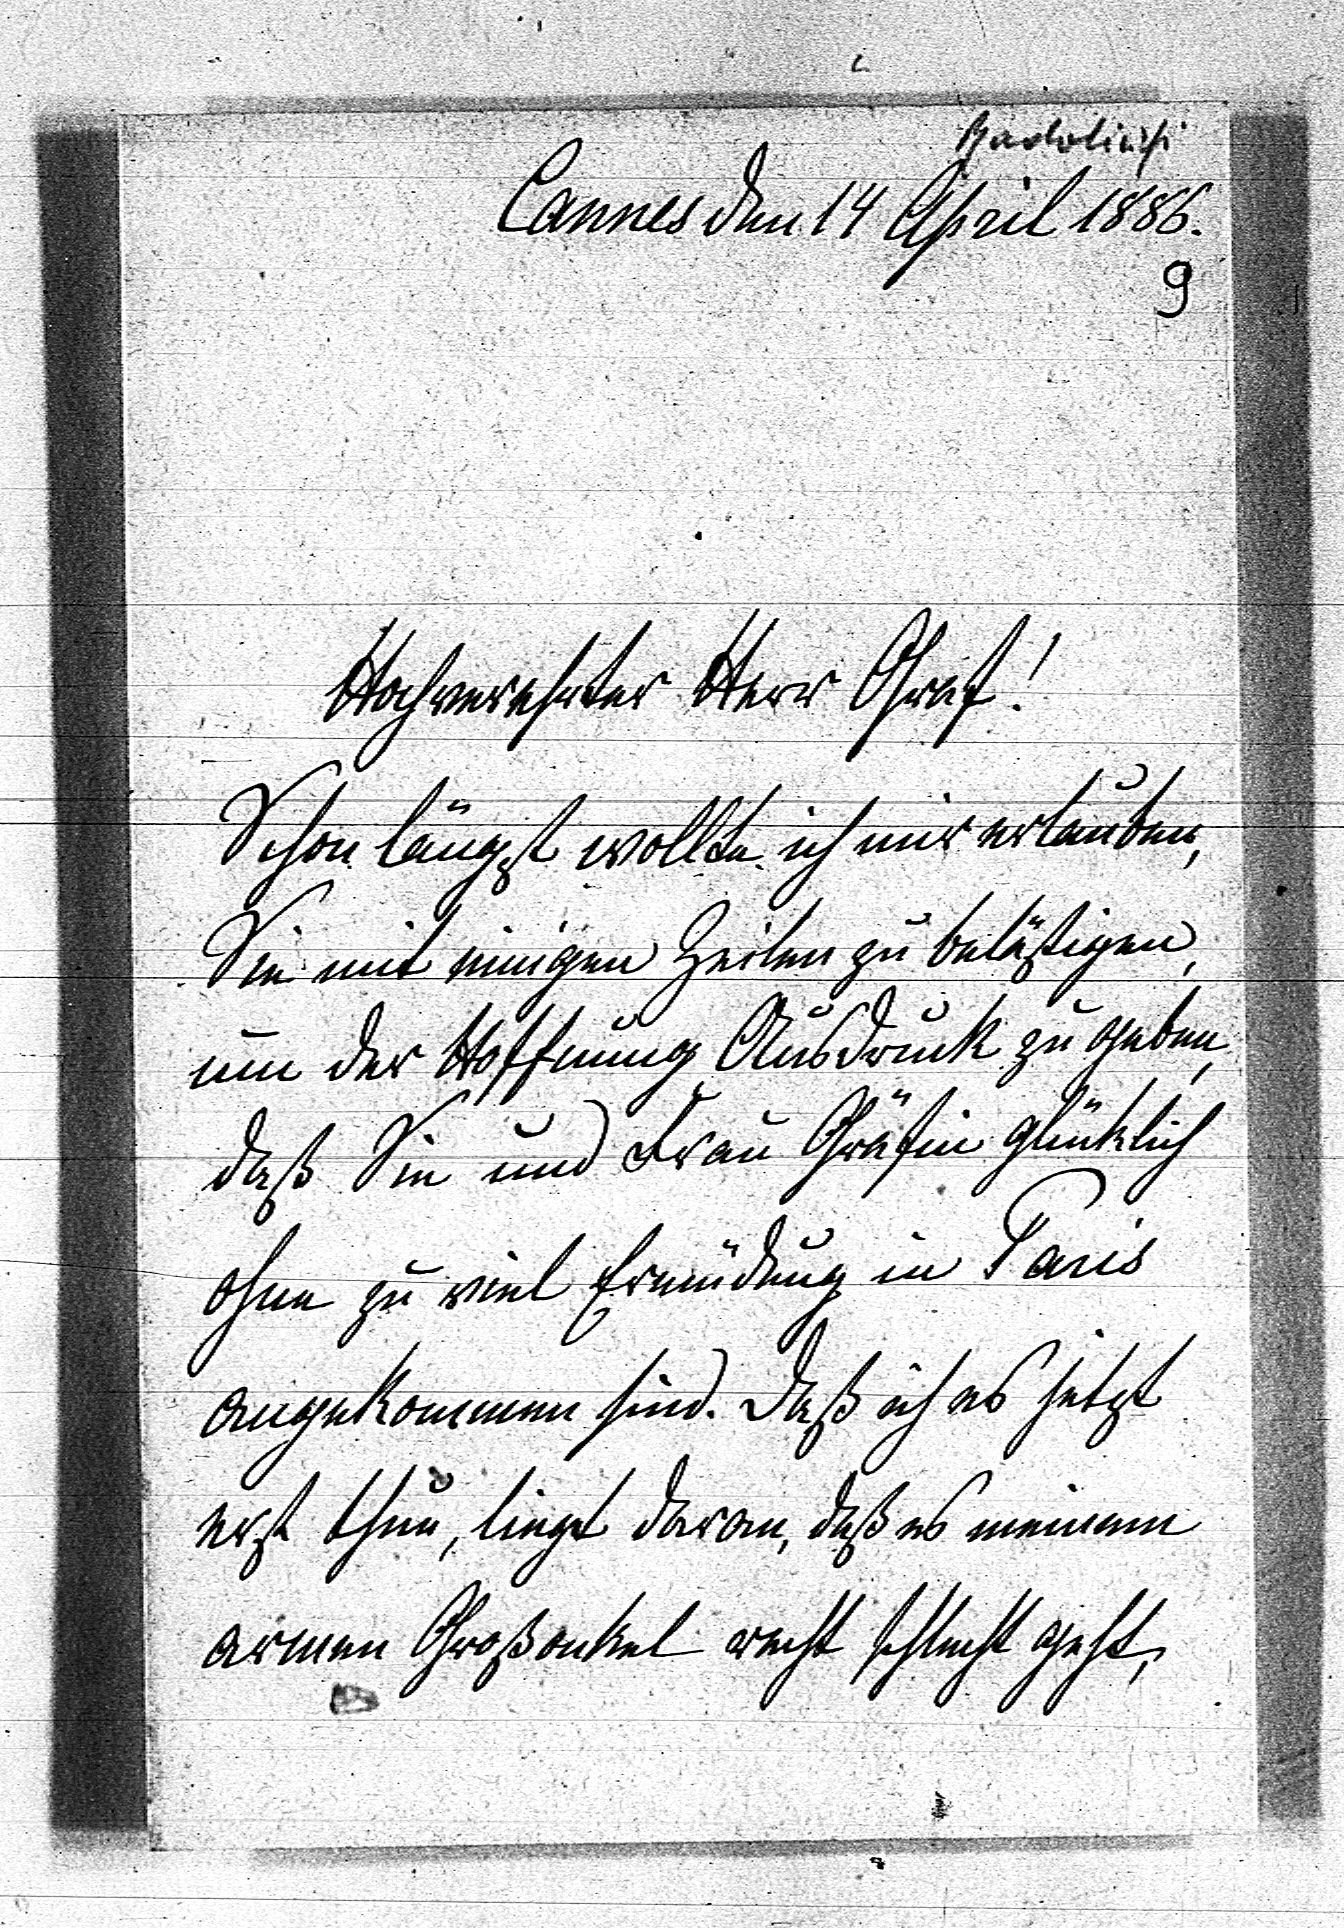 Radolinski
Cannes den 14 April 1886.
9
Hochverehrter Herr Graf!
Schon längst wollte ich mir erlauben,
Sie mit einigen Zeilen zu beläßtigen,
um der Hoffnung Ausdruck zu geben,
daß Sie und Frau Gräfin glücklich
ohne zu viel Ermüdung in Paris
angekommen sind. Daß ich es jetzt
erst thue, liegt daran, daß es meinem
armen Großonkel recht schlecht geht,